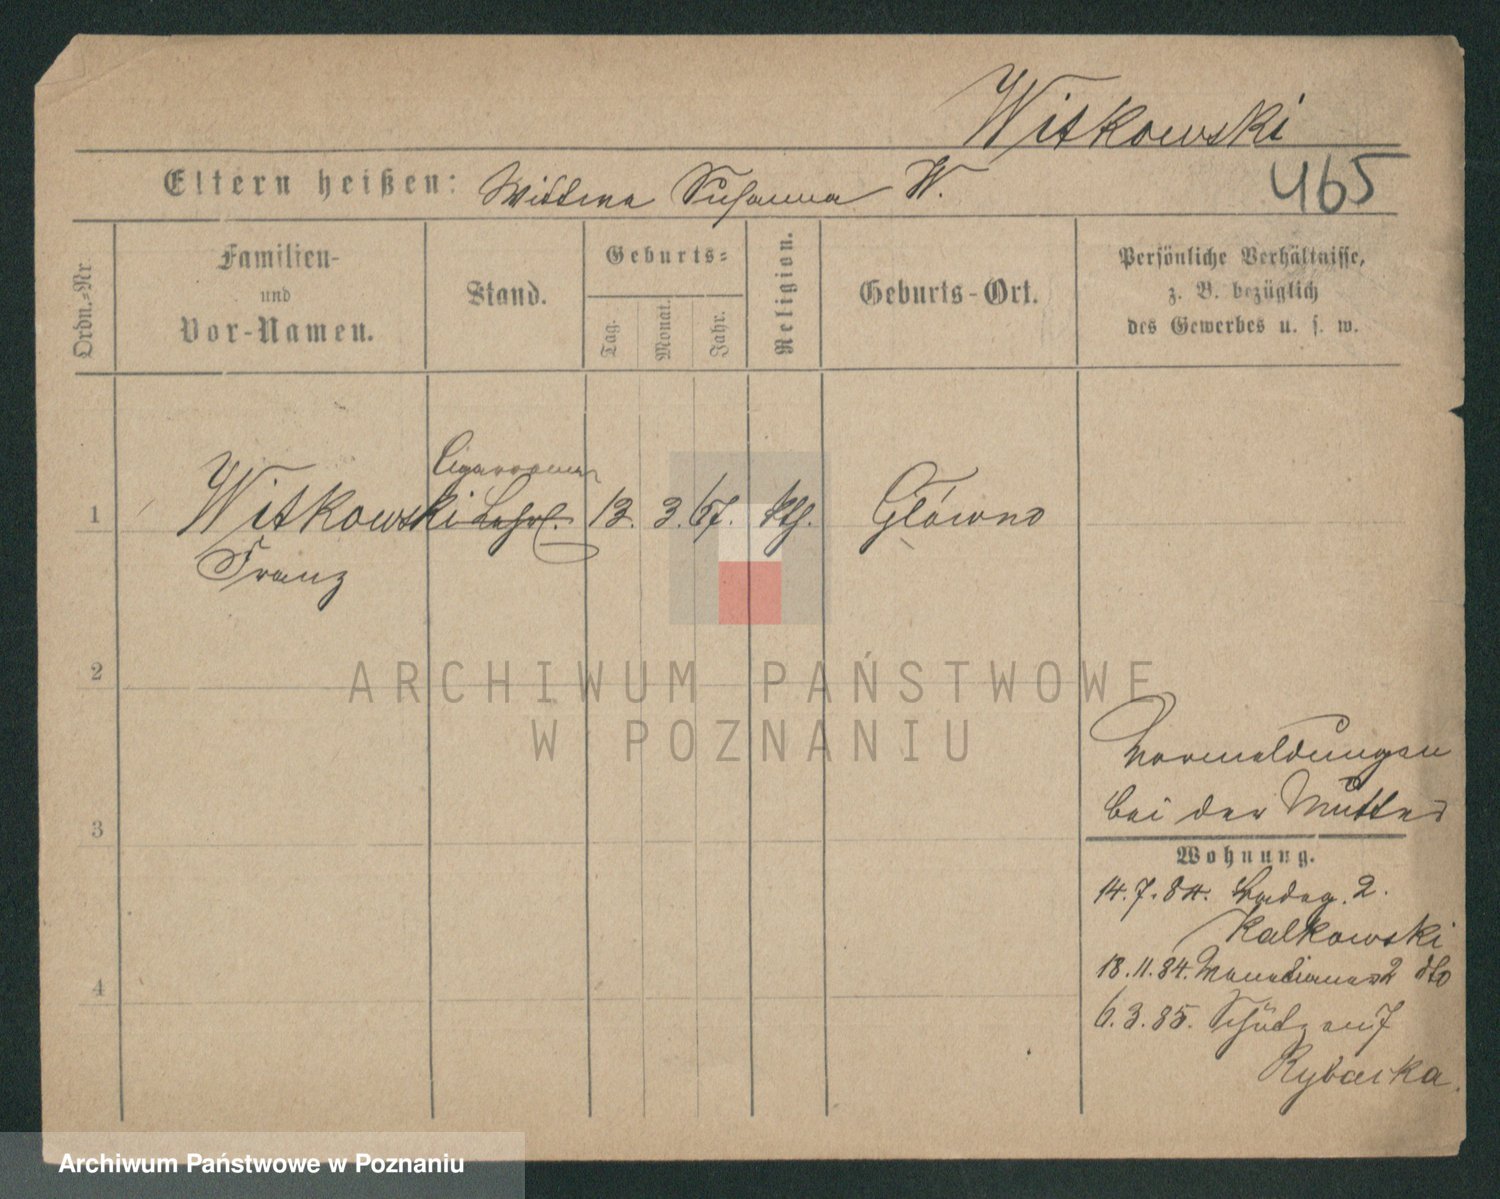 Witkowski
465
Eltern heißen: Wittwe Susanna W.
Ordn.-Nr.
Familien-
und
Vor-Namen.
Stand.
Geburts-
Tag.
Monat.
Jahr.
Religion.
Geburts-Ort.
Persönliche Verhältnisse,
z. B. bezüglich
des Gewerbes u. s. w.
1 Witkowski Lehrl. 13. 3. 67. kth. Główno
Franz
2
3
4
ARCHIWUM PAŃSTWOWE
W POZNANIU
Vormeldungen
bei der Mutter
Wohnung.
14.7.84. 2.
Kalkowski
18.11.84. 2 dto
6.3.85. Schützenstr 7
Rybacka.
Archiwum Państwowe w Poznaniu